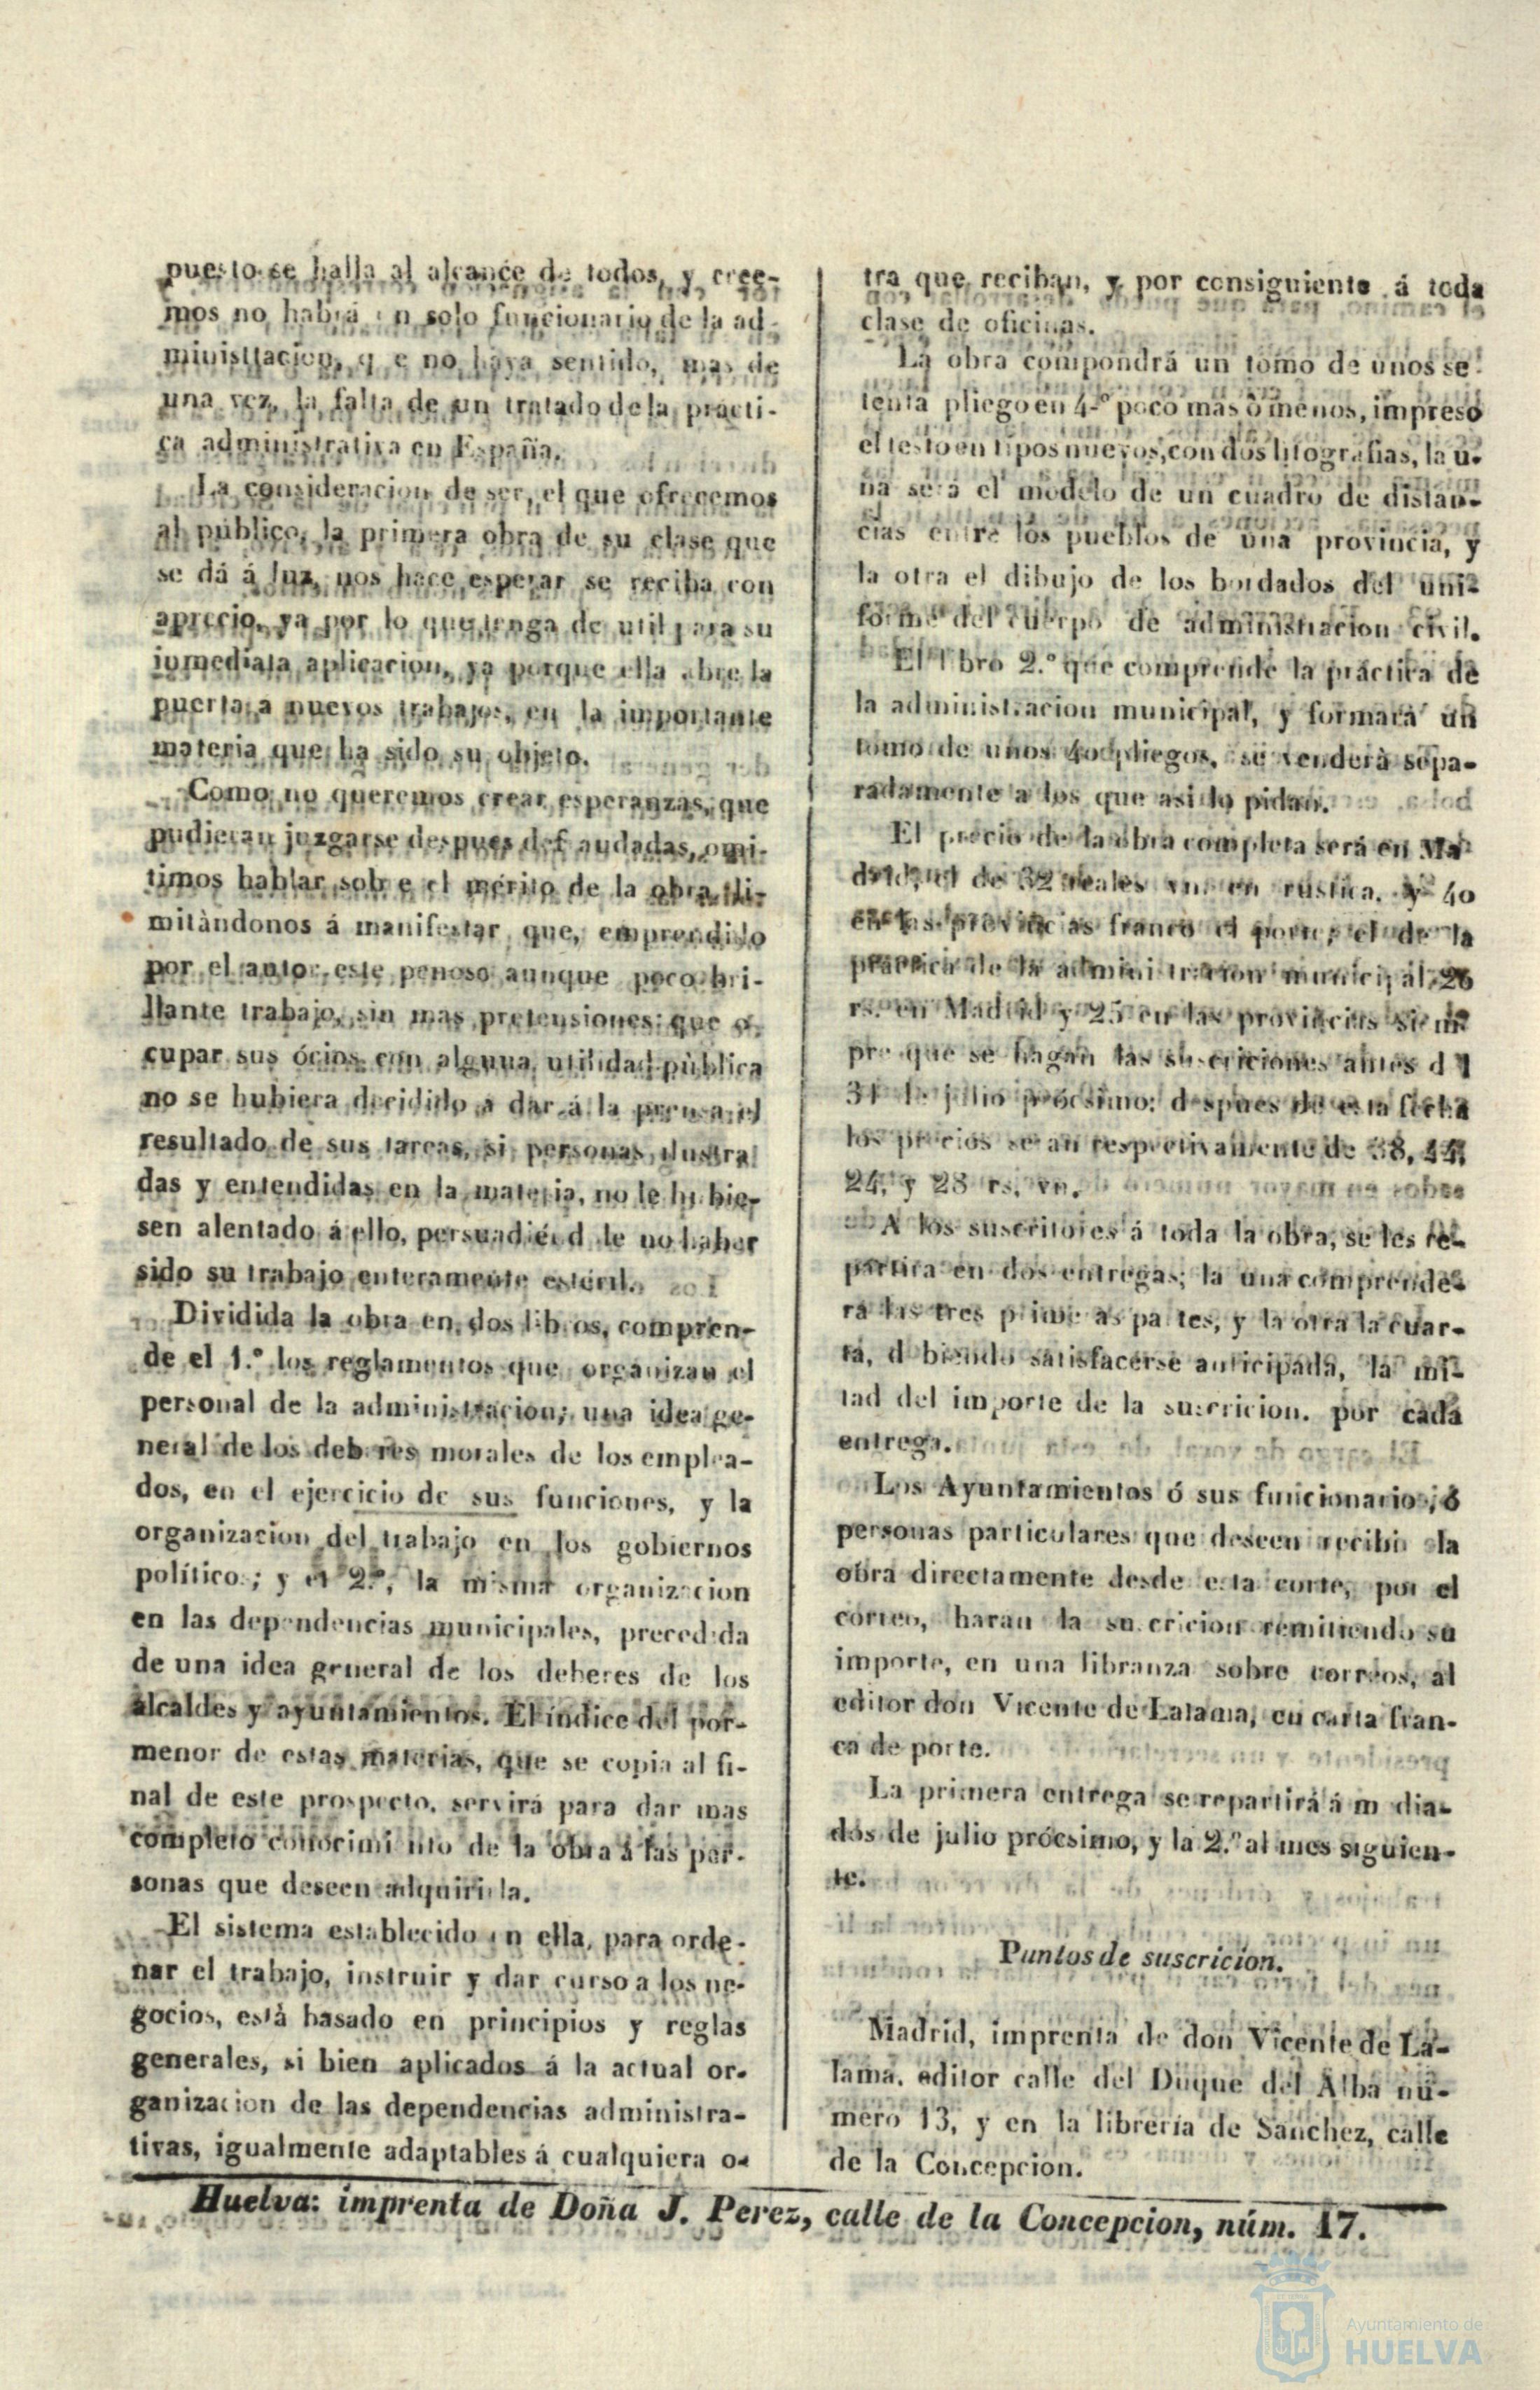 puesto se halla al alcance de todos, y cree-
mos no habrá un solo funcionario de la ad-
ministtacion, q e no haya sentido, mas de
una vez, la falta de un tratado de la practi-
ca administrativa en España.
La consideracion de ser, el que ofrecemos
al público, la primera obra de su clase que
se dá á luz, nos hace esperar se reciba con
aprecio, ya por lo que tenga de util para su
inmediata aplicacion, ya porque ella abre la
puerta a nuevos trabajos, en la importante
materia que ha sido su objeto.
Como no queremos crear esperanzas, que
pudieran juzgarse despues def audadas, omi-
timos hablar sobre el mérito de la obra, li-
mitàndonos á manifestar que, emprendido
por el autor este penoso aunque poco bri-
llante trabajo, sin mas pretensiones que o-
cupar sus ócios con alguna utilidad pùblica
no se hubiera decidido a dar á la prensa el
resultado de sus tareas, si personas ilustra
das y entendidas en la materia, no le hubie-
sen alentado á ello, persuadiéndole no haber
sido su trabajo enteramente estéril.
Dividida la obra en dos libros, compren-
de el 1.º los reglamentos que organizan el
personal de la administracion; una idea ge-
neral de los deberes morales de los emplea-
dos, en el ejercicio de sus funciones, y la
organizacion del trabajo en los gobiernos
político ; y el 2.º, la misma organizacion
en las dependencias municipales, precedida
de una idea general de los deberes de los
alcaldes y ayuntamientos. El índice del por-
menor de estas materias, que se copia al fi-
nal de este prospecto, servirá para dar mas
completo conocimi nto de la obra á las per-
sonas que deseen adquirirla.
El sistema establecido en ella, para orde-
nar el trabajo, instruir y dar curso a los ne-
gocios, està basado en principios y reglas
generales, si bien aplicados á la actual or-
ganizacion de las dependencias administra-
tivas, igualmente adaptables á cualquiera o-
tra que reciban, y por consiguiente á toda
clase de oficinas.
La obra compondrá un tomo de unos se
tenta pliego en 4.º poco mas ò menos, impreso
el testo en tipos nuevos, con dos litografias, la u-
na será el modelo de un cuadro de distan-
cias entre los pueblos de una provincia, y
la otra el dibujo de los bordados del uni-
forme del cuerpo de administracion civil.
El libro 2.º que comprende la práctica de
la administracion municipal, y formará un
tomo de unos 40 pliegos, se venderà sepa-
radamente a los que asi lo pidan.
El precio de la obra completa será en Ma
drid, el de 32 reales vn. en rústica, y 40
en las provincias franco el porte; el de la
práctica de la administracion municipal, 26
rs. en Madrid y 25 en las provincias siem
pre que se hagan las suscriciones antes d l
31 de julio prócsimo: despues de esta fecha
los precios seran respectivamente de 38, 44,
24, y 28 rs. vn.
A los suscritores á toda la obra, se les re-
partira en dos entregas; la una comprende-
rá las tres primeras partes, y la otra la cuar-
ta, debiendo satisfacerse anticipada, la mi-
tad del importe de la suscricion. por cada
entrega.
Los Ayuntamientos ó sus funcionarios, ó
personas particulares que deseen recibir la
obra directamente desde esta corte, por el
correo, haran la suscricion remitiendo su
importe, en una libranza sobre correos, al
editor don Vicente de Lalama, en carta fran-
ca de porte.
La primera entrega se repartirá á m dia-
dos de julio prócsimo, y la 2.ª al mes siguien-
te.
Puntos de suscricion.
Madrid, imprenta de don Vicente de La-
lama, editor calle del Duque del Alba nú-
mero 13, y en la librería de Sanchez, calle
de la Concepcion.
Huelva: imprenta de Doña J. Perez, calle de la Concepcion, núm. 17.
Ayuntamiento de
HUELVA